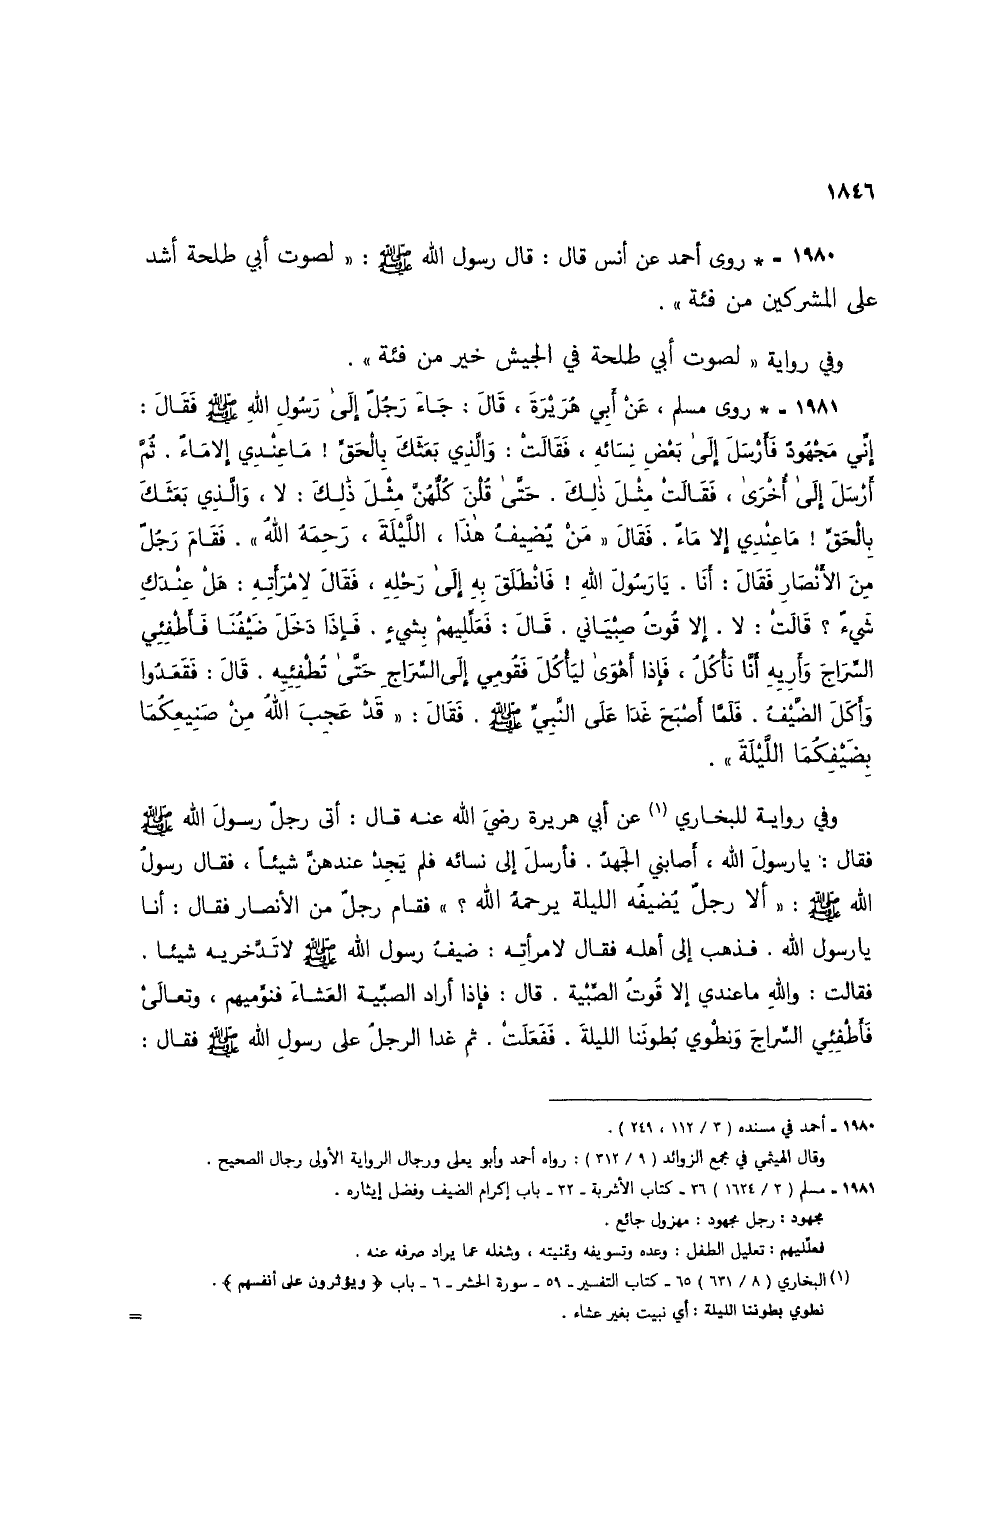 ١٨٤٦
١٩٨٠ - * روى أحمد عن أنس قال : قال رسول الله ﷺ : « لصوت أبي طلحة أشد
على المشركين من فئة » .
وفي رواية « لصوت أبي طلحة في الجيش خير من فئة » .
١٩٨١ - * روى مسلم ، عَنْ أَبِي هُرَيْرَةَ ، قَالَ : جَاءَ رَجُلٌ إِلَىٰ رَسُولِ اللهِ ﷺ فَقَالَ :
إِنِّي مَجْهُودٌ فَأَرْسَلَ إِلَىٰ بَعْضِ نِسَائِهِ ، فَقَالَتْ : وَالَّذِي بَعَثَكَ بِالْحَقِّ ! مَاعِنْدِي إِلامَاءٌ . ثُمَّ
أَرْسَلَ إِلَىٰ أُخْرَىٰ ، فَقَالَتْ مِثْلَ ذٰلِكَ . حَتَّىٰ قُلْنَ كُلُّهُنَّ مِثْلَ ذٰلِكَ : لا ، وَالَّذِي بَعَثَكَ
بِالْحَقِّ ! مَاعِنْدِي إِلا مَاءٌ . فَقَالَ « مَنْ يُضِيفُ هٰذَا ، اللَّيْلَةَ ، رَحِمَهُ اللهُ » . فَقَامَ رَجُلٌ
مِنَ الأَنْصَارِ فَقَالَ : أَنَا . يَارَسُولَ اللهِ ! فَانْطَلَقَ بِهِ إِلَىٰ رَحْلِهِ ، فَقَالَ لِامْرَأَتِهِ : هَلْ عِنْدَكِ
شَيءٌ ؟ قَالَتْ : لا . إِلا قُوتُ صِبْيَانِي . قَالَ : فَعَلِّلِيهِمْ بِشَيءٍ . فَإِذَا دَخَلَ ضَيْفُنَا فَأَطْفِئِي
السِّرَاجَ وَأَرِيهِ أَنَّا نَأْكُلُ ، فَإِذا أَهْوَىٰ لِيَأْكُلَ فَقُومِي إِلَى السِّرَاجِ حَتَّىٰ تُطْفِئِيهِ . قَالَ : فَقَعَدُوا
وَأَكَلَ الضَّيْفُ . فَلَمَّا أَصْبَحَ غَدَا عَلَى النَّبِيِّ ﷺ . فَقَالَ : « قَدْ عَجِبَ اللهُ مِنْ صَنِيعِكُمَا
بِضَيْفِكُمَا اللَّيْلَةَ » .
وفي رواية للبخاري (١) عن أبي هريرة رضيَ الله عنه قال : أتى رجلٌ رسولَ الله ﷺ
فقال : يارسولَ الله ، أصابني الجَهدُ . فأرسلَ إلى نسائه فلم يَجِدْ عندهنَّ شيئاً ، فقال رسولُ
الله ﷺ : « ألا رجلٌ يُضيفُه الليلة يرحمهُ الله ؟ » فقام رجلٌ من الأنصار فقال : أنا
يارسول الله . فذهب إلى أهله فقال لامرأتِه : ضيفُ رسول الله ﷺ لاتَدَّخريه شيئا .
فقالت : واللهِ ماعندي إلا قُوتُ الصِّبْية . قال : فإذا أراد الصبِّية العَشاءَ فنوِّميهم ، وتعالَىْ
فَأَطْفِئِي السِّراجَ وَنطْوِي بُطونَنا الليلةَ . فَفَعَلَتْ . ثم غدا الرجلُ على رسولِ الله ﷺ فقال :
١٩٨٠ - أحمد في مسنده ( ٣ / ١١٢ ، ٢٤٩ ) .
وقال الهيثمي في مجمع الزوائد ( ٩ / ٣١٢ ) : رواه أحمد وأبو يعلى ورجال الرواية الأولى رجال الصحيح .
١٩٨١ - مسلم ( ٣ / ١٦٢٤ ) ٣٦ - كتاب الأشربة - ٣٢ - باب إكرام الضيف وفضل إيثاره .
مجهود : رجل مجهود : مهزول جائع .
فعلِّليهم : تعليل الطفل : وعده وتسويفه وتمنيته ، وشغله عما يراد صرفه عنه .
(١) البخاري ( ٨ / ٦٣١ ) ٦٥ - كتاب التفسير - ٥٩ - سورة الحشر - ٦ - باب ﴿ ويؤثرون على أنفسهم ﴾ .
نطوي بطوننا الليلة : أي نبيت بغير عشاء .
=